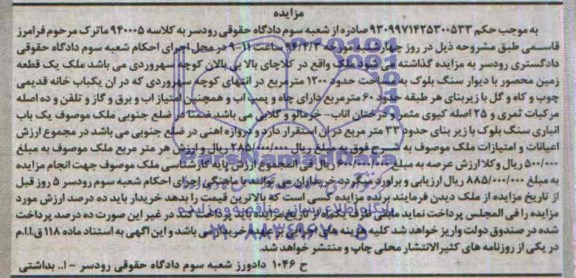 مزایده
به موجب حکم ۹۳۰۹۹۷۱۴۲۵۳۰۰۵۳۳ صادره از شعبه سوم دادگاه حقوقی رودسر به کلاسه ۹۴۰۰۰۵ ماترک مرحوم فرامرز
قاسمی طبق مشروحه ذیل در روز چهارشنبه مورخه ۹۴/۴/۳ ساعت ۹-۱۱ در محل اجرای احکام شعبه سوم دادگاه حقوقی
دادگستری رودسر به مزایده گذاشته می شود ملک واقع در کلاچای بالا بی بالان کوچه سهروردی می باشد ملک یک قطعه
زمین محصور با دیوار سنگ بلوک به مساحت حدود ۱۲۰۰ مترمربع در انتهای کوچه سهروردی که در ان یکباب خانه قدیمی
چوب و کاه و گل با زیربنای هر طبقه حدود ۶۰ مترمربع دارای چاه و پمپ اب و همچنین امتیاز اب و برق و گاز و تلفن و ده اصله
مرکبات ثمری و ۲۵ اصله کیوی مثمر و درختان اناب- خرمالو و گلابی می باشد ضمنا در ضلع جنوبی ملک موصوف یک باب
انباری سنگ بلوک با زیر بنای حدود ۳۳ متر مربع در ان استقرار دارد و دروازه اهنی در ضلع جنوبی می باشد در مجموع ارزش
اعیانات و امتیازات ملک موصوف به شرح فوق به مبلغ ریال ۲۸۵/۰۰۰/۰۰۰ ریال و ارزش هر متر مربع ملک موصوف به مبلغ
۵۰۰/۰۰۰ ریال و کلا ارزش عرصه به مبلغ ریال فی المجموع ارزش پایه کارشناسی ملک موصوف جهت انجام مزایده
به مبلغ ۸۸۵/۰۰۰/۰۰۰ ریال ارزیابی و براورد می گردد خریداران می توانند با هماهنگی اجرای احکام شعبه سوم رودسر ۵ روز قبل
از تاریخ مزایده از ملک دیدن فرمایند برنده مزایده کسی است که بالاترین قیمت را بدهد خریدار باید ده درصد ارزش مورد
مزایده را فی المجلس پرداخت نماید مابقی از تاریخ در غیر این صورت ده درصد پرداخت
شده در صندوق دولت واریز خواهد شد کلیه هزینه های می باشد و این اگهی به استناد ماده ۱۱۸ ق.ا.ا.م
در یکی از روزنامه های کثیرالانتشار محلی چاپ و منتشر خواهد شد.
ح ۱۰۴۶ دادورز شعبه سوم دادگاه حقوقی رودسر - ا.. بداشتی
ParsNamadData